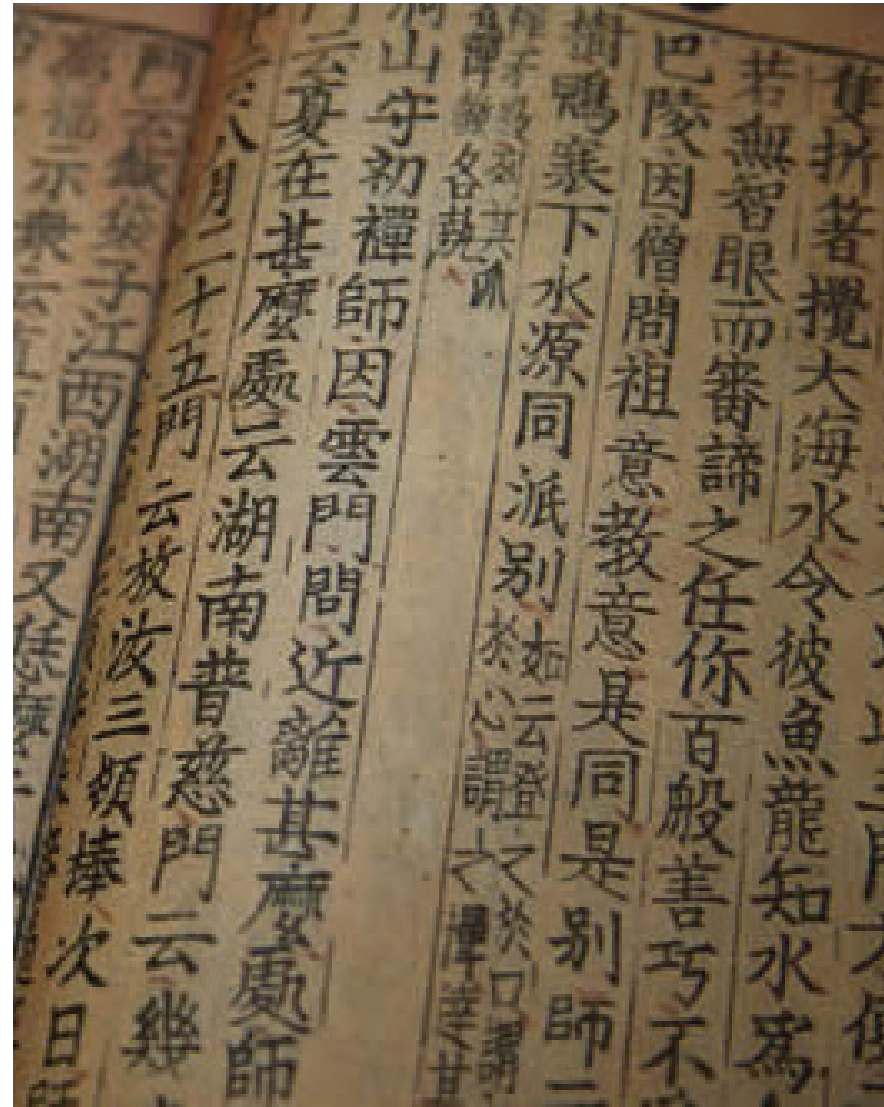 折著攪大海水令彼魚龍知水爲
若無智眼而審諦之任你百般善巧不
巴陵因僧問祖意教意是同是別師
樹鴨寒下水源同派別如云證之於口謂
於心謂之禪
其派
各號
洞山守初禪師因雲門問近離甚麼處師
門云夏在甚麼處云湖南普慈門云幾
八月二十五門云放汝三頓棒次日師
門云飯袋子江西湖南又恁麼
示衆云